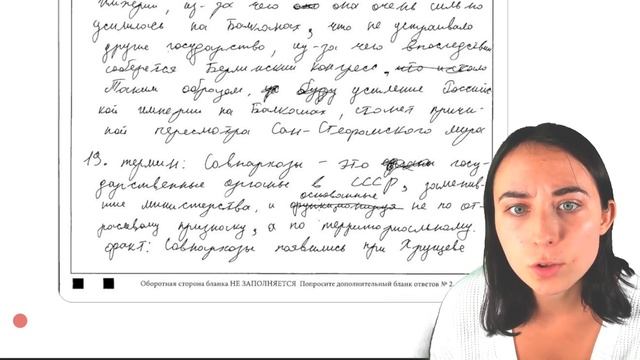 империи, из-за чего она очень сильно
усилилась на Балканах, что не устраивало
другие государство, из-за чего впоследствии
соберется Берлинский конгресс, что и стало
Таким образом, усиление Российс
кой империи на Балканах, станет причи-
ной пересмотра Сан-Стефанского мира
19. термин: Совнархозы - это госу-
дарственные органы в СССР, заменив-
основанные
шие министерства, и функционируя не по от-
раслевому признаку, а по территориальному.
факт: Совнархозы появились при Хрущеве
Оборотная сторона бланка НЕ ЗАПОЛНЯЕТСЯ Попросите дополнительный бланк ответов № 2